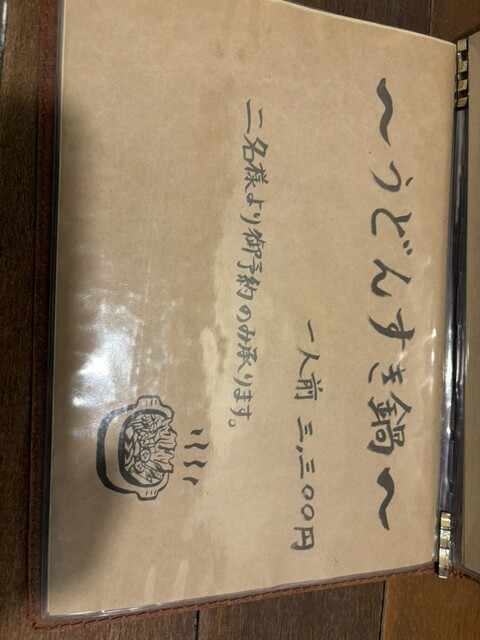 〜うどんすき鍋〜
一人前 三,三〇〇円
二名様より御予約のみ承ります。